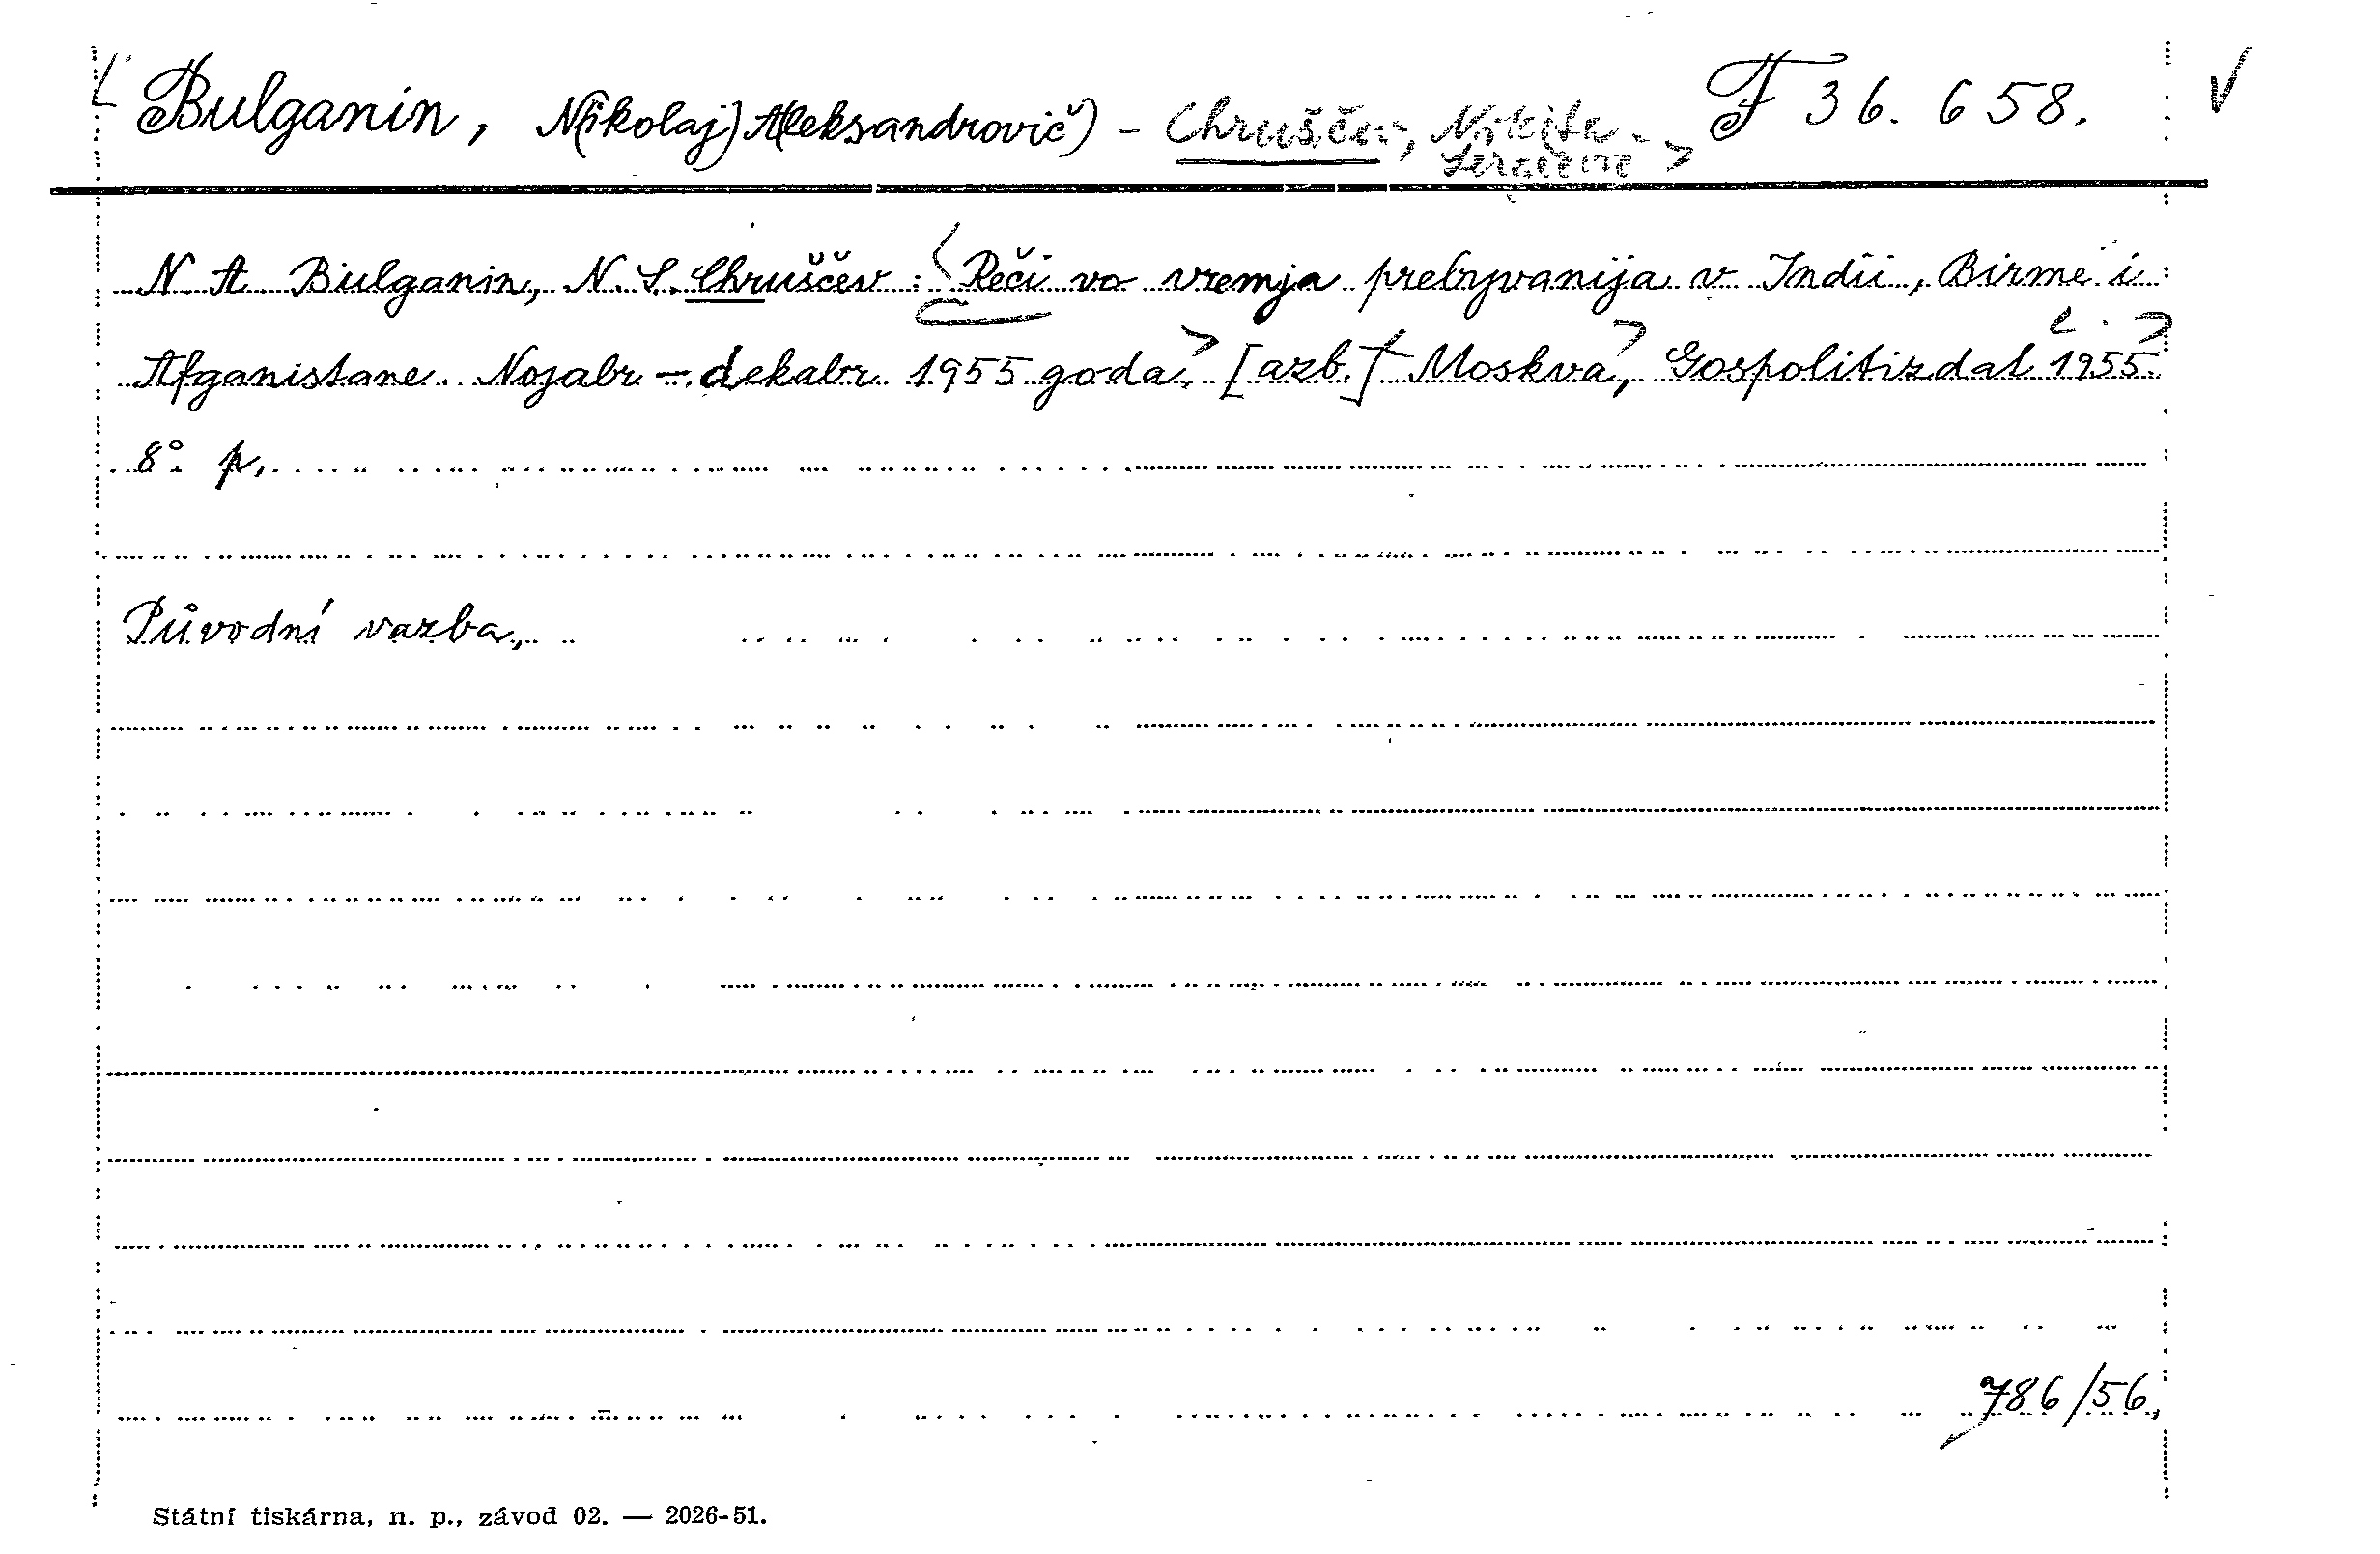 Bulganin, N(ikolaj) A(leksandrovič) - Chruščev, Nikita F 36.658.
N. A. Bulganin, N. S. Chruščev: Reči vo vremja prebyvanija v Indii, Birme i
Afganistane. Nojabr - dekabr 1955 goda. [azb.] Moskva, Gospolitizdat 1955.
8°. p.
Původní vazba,
786/56,
Státní tiskárna, n. p., závod 02. — 2026-51.